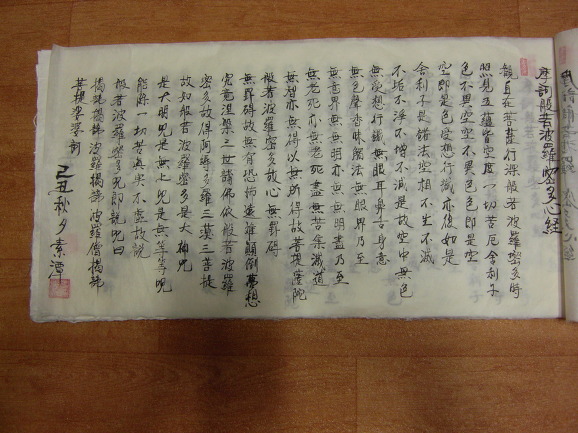 摩訶般若波羅蜜多心經
觀自在菩薩行深般若波羅蜜多時
照見五蘊皆空度一切苦厄舍利子
色不異空空不異色色即是空
空即是色受想行識亦復如是
舍利子是諸法空相不生不滅
不垢不淨不增不減是故空中無色
無受想行識無眼耳鼻舌身意
無色聲香味觸法無眼界乃至
無意界無無明亦無無明盡乃至
無老死亦無老死盡無苦集滅道
無智亦無得以無所得故菩提薩陀
般若波羅蜜多故心無罣碍
無罣碍故無有恐怖遠離顛倒夢想
究竟涅槃三世諸佛依般若波羅
密多故得阿耨多羅三藐三菩提
故知般若波羅蜜多是大神呪
是大明呪是無上呪是無等等呪
能除一切苦真实不虛故說
般若波羅蜜多呪即說呪曰
揭諦揭諦波羅揭諦波羅僧揭諦
菩提娑婆訶
己丑秋夕 素潭